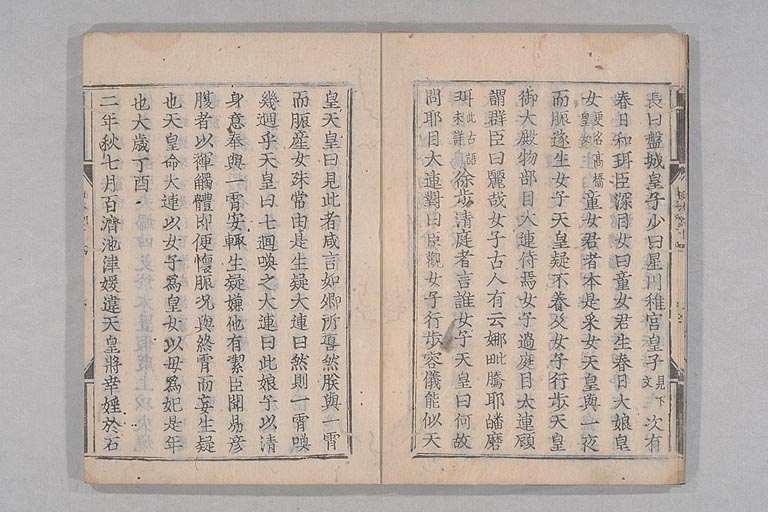 長曰盤城皇子少曰星川稚宮皇子見下文次有
春日和珥臣深目女曰童女君生春日大娘皇
女更名高橋皇女童女君者本是采女天皇與一夜
而脤遂生女子天皇疑不養及女子行步天皇
御大殿物部目大連侍焉女子過庭目大連顧
謂群臣曰麗哉女子古人有云娜毗騰耶皤麼
珥此古語未詳徐步清庭者言誰女子天皇曰何故
問耶目大連對曰臣觀女子行步容儀能似天
皇天皇曰見此者咸言如卿所噵然朕與一宵
而脤産女殊常由是生疑大連曰然則一宵喚
幾迴乎天皇曰七迴喚之大連曰此娘子以清
身意奉與一宵安輒生疑嫌他有潔臣聞易産
腹者以褌觸體即便懷脤况與終宵而妄生疑
也天皇命大連以女子爲皇女以母爲妃是年
也大歲丁酉
二年秋七月百濟池津媛違天皇將幸婬於石